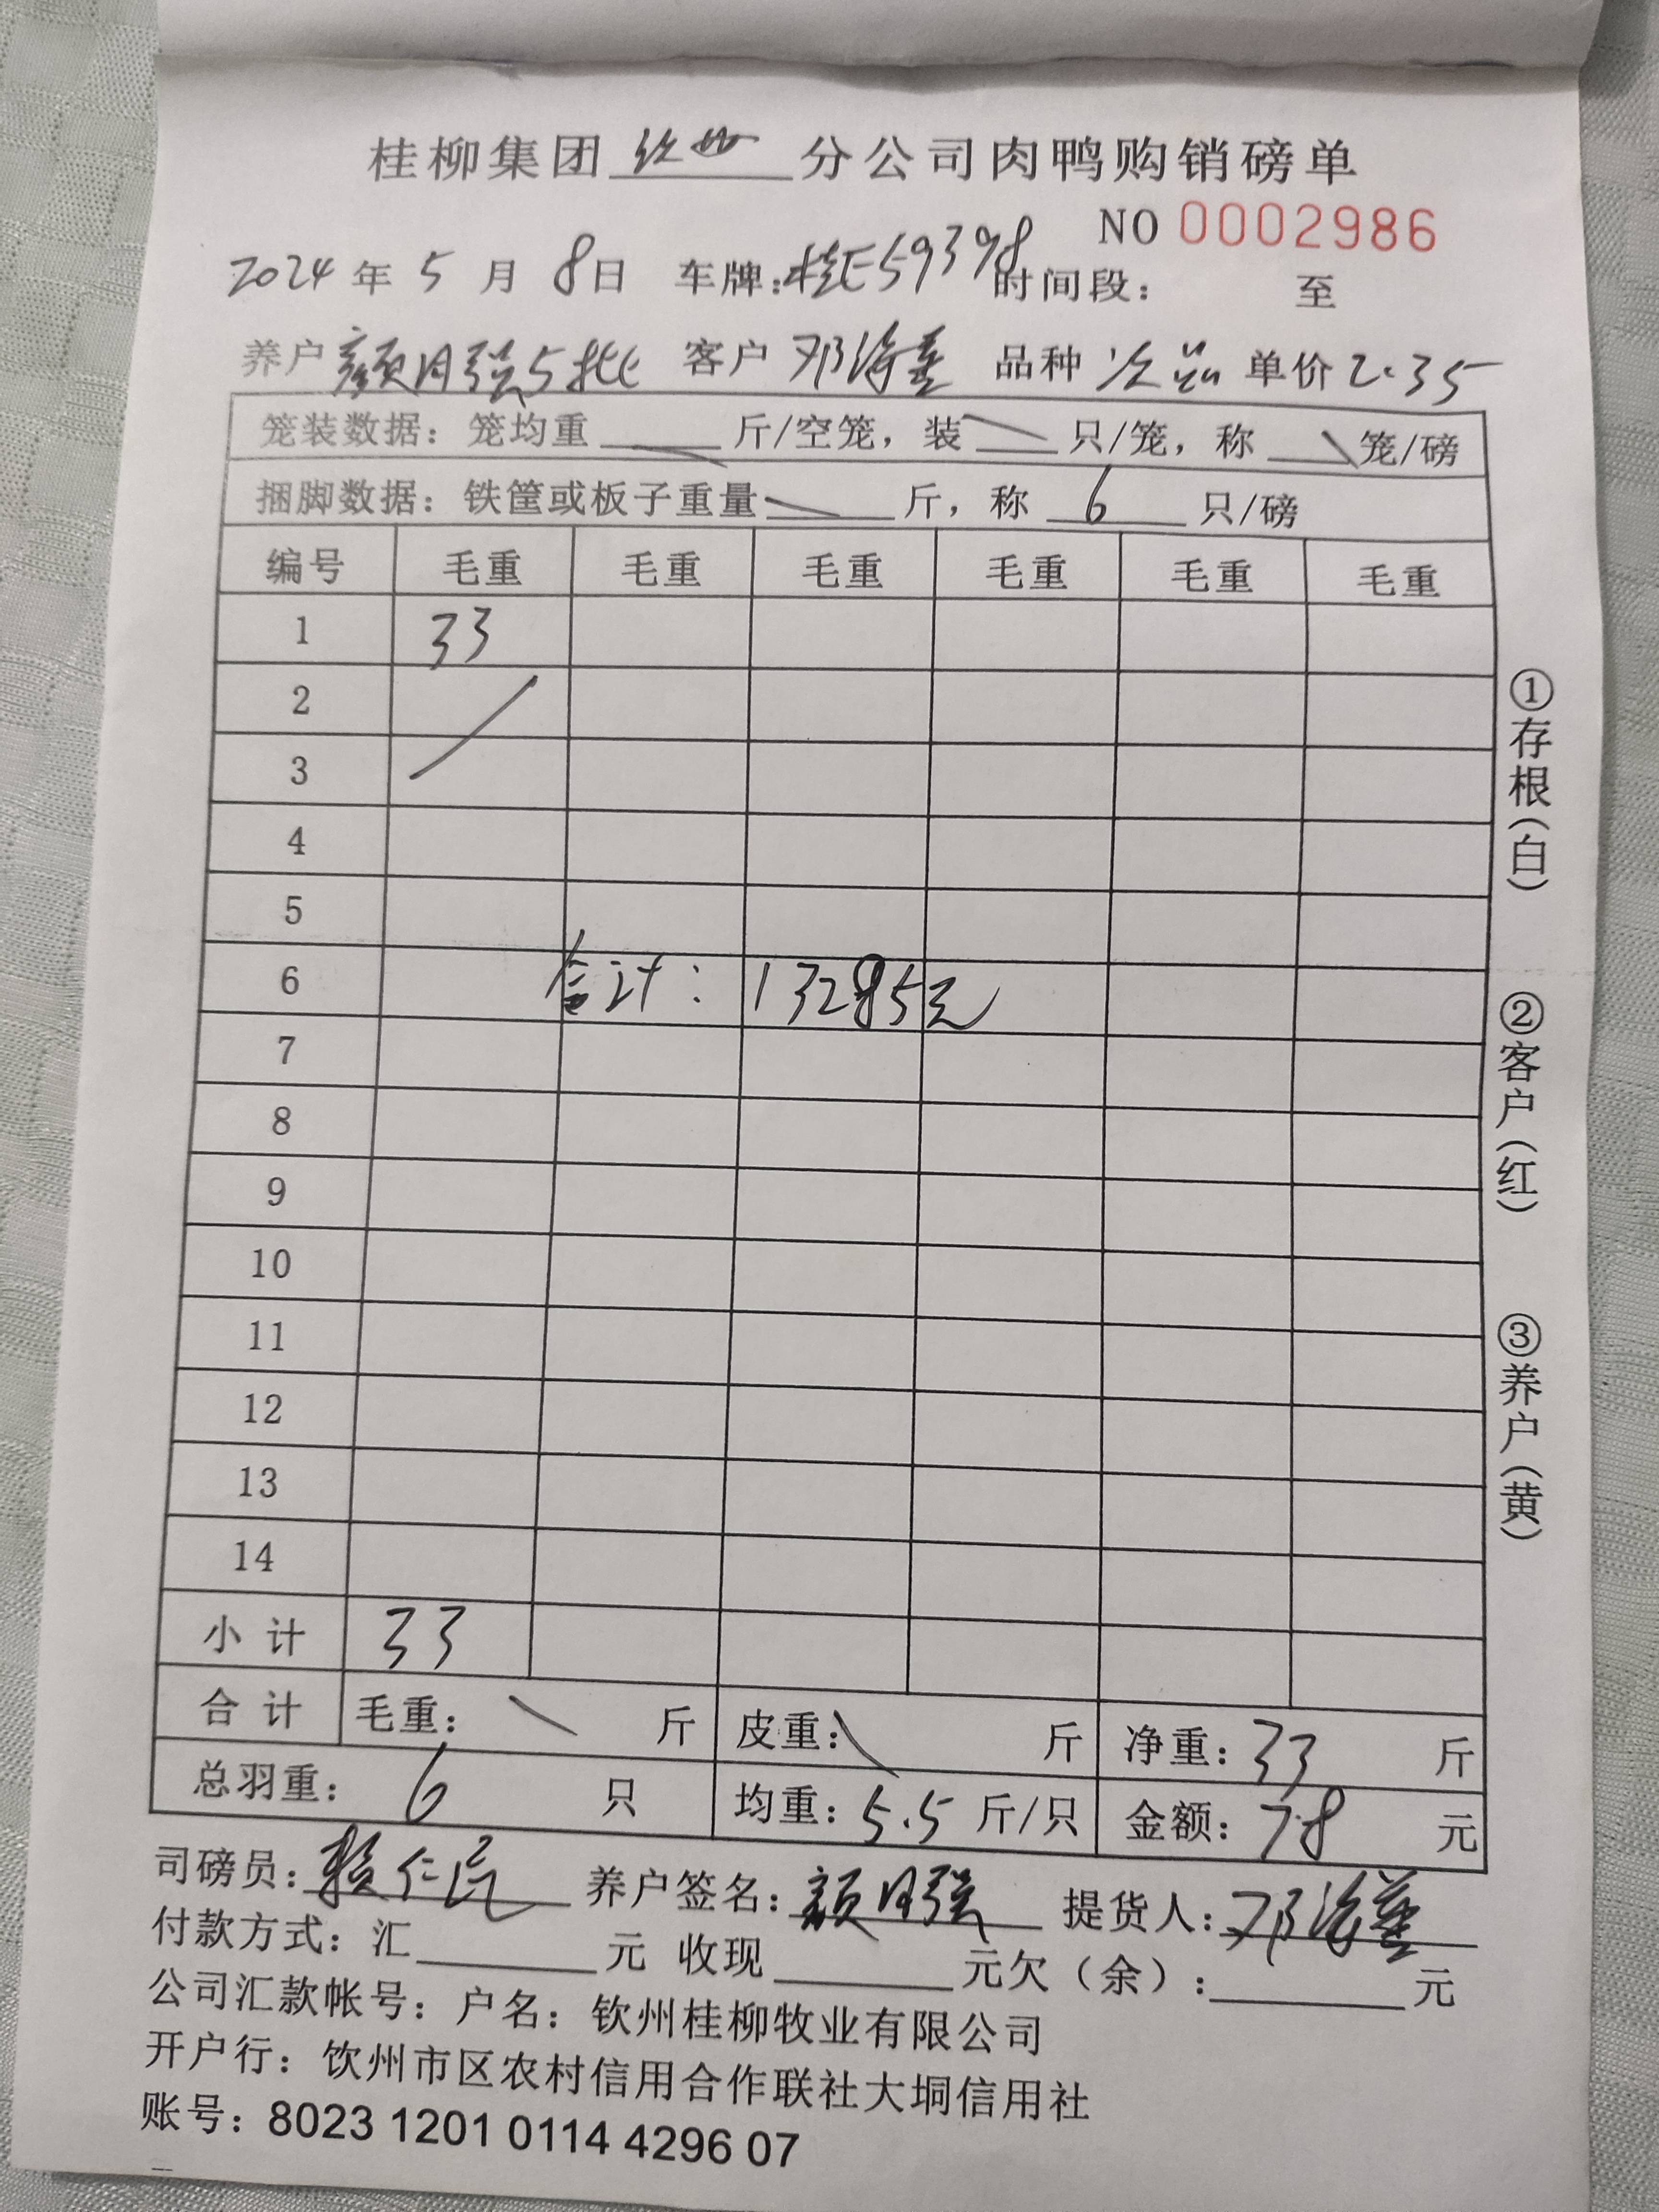 桂柳集团 钦州 分公司肉鸭购销磅单
NO 0002986
2024 年 5 月 8 日 车牌: 桂E59398 时间段: 至
养户 颜月强5批 客户 邓 品种 次品 单价 2.35
笼装数据: 笼均重 斤/空笼, 装 只/笼, 称 笼/磅
捆脚数据: 铁筐或板子重量 斤, 称 6 只/磅
编号 毛重 毛重 毛重 毛重 毛重 毛重
1 33
2
3
4
5
6 合计: 13285元
7
8
9
10
11
12
13
14
小计 33
合计 毛重: 斤 皮重: 斤 净重: 33 斤
总羽重: 6 只 均重: 5.5 斤/只 金额: 78 元
司磅员: 赖仁 养户签名: 颜月强 提货人: 邓
付款方式: 汇 元 收现 元欠(余): 元
公司汇款帐号: 户名: 钦州桂柳牧业有限公司
开户行: 饮州市区农村信用合作联社大垌信用社
账号: 8023 1201 0114 4296 07
①存根(白)
②客户(红)
③养户(黄)